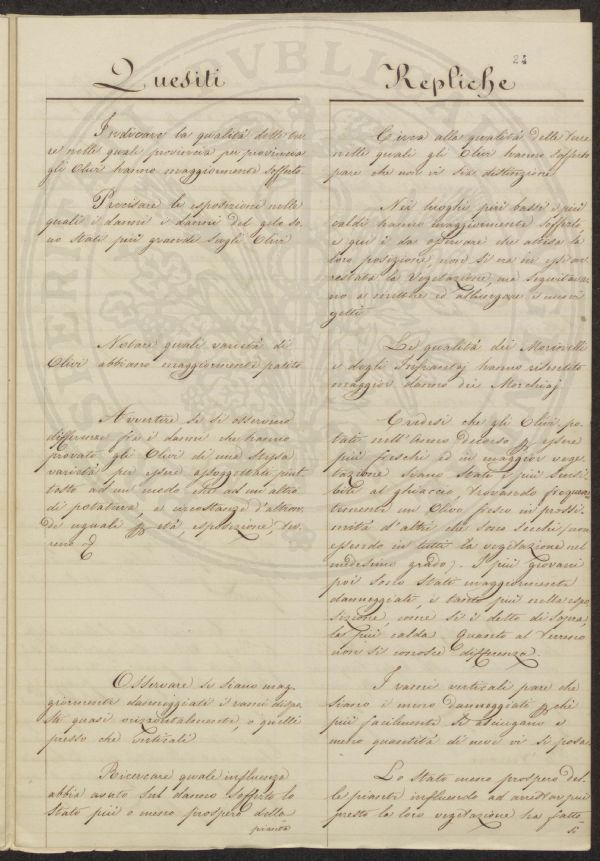 24
Quesiti
Indicare la qualità delle ter
re nelle quali provincia per provincia
gli Olivi hanno maggiormente sofferto.
Precisare le esposizione nelle
quali i danni e danni del gelo so
no stati più grande sugli Olivi
Notare quali varietà di
Olivi abbiano maggiormente patito
Avvertire se si osservino
differenze fra i danni che hanno
provato gli Olivi di una stessa
varietà per essere assoggettati piut
tosto ad un modo che ad un altro
di potatura, e circostanze d'altron
de uguali di età, esposizione, ter
reno &
Osservare se siano mag
giormente danneggiati i rami dispo
sti quasi orizzontalmente, o quelli
presso che verticali
Ricercare quale influenza
abbia avuto sul danno sofferto lo
stato più o meno prospero della
pianta
Repliche
Circa alla qualità delle terre
nelle quali gli Olivi hanno sofferto
pare che non vi sia distinzione
Nei luoghi più bassi e più
caldi hanno maggiormente sofferto,
e qui è da osservare che attesa la
loro posizione non si era in essi ar
restata la vegetazione, ma seguitava
no a mettere ed allungare i nuovi
getti
Le qualità dei Morinelli
e degli Infrantoj hanno risentito
maggior danno dei Morchiaj
Credesi che gli Olivi po
tati nell'anno decorso per essere
più freschi ed in maggior vege
tazione siano stati i più sensi
bili al ghiaccio, trovando frequen
temente un Olivo fresco in prossi
mità d'altri che sono secchi (non
essendo in tutti la vegetazione nel
medesimo grado). I più giovani
poi sono stati maggiormente
danneggiati, e tanto più nella espo
sizione, come si è detto di sopra,
la più calda. Quanto al terreno
non si conosce differenza.
I rami verticali pare che
siano i meno danneggiati perchè
più facilmente si asciugano e
meno quantità di neve vi si posa
Lo stato meno prospero del
le piante influendo ad arrestar più
presto la loro vegetazione ha fatto
sì